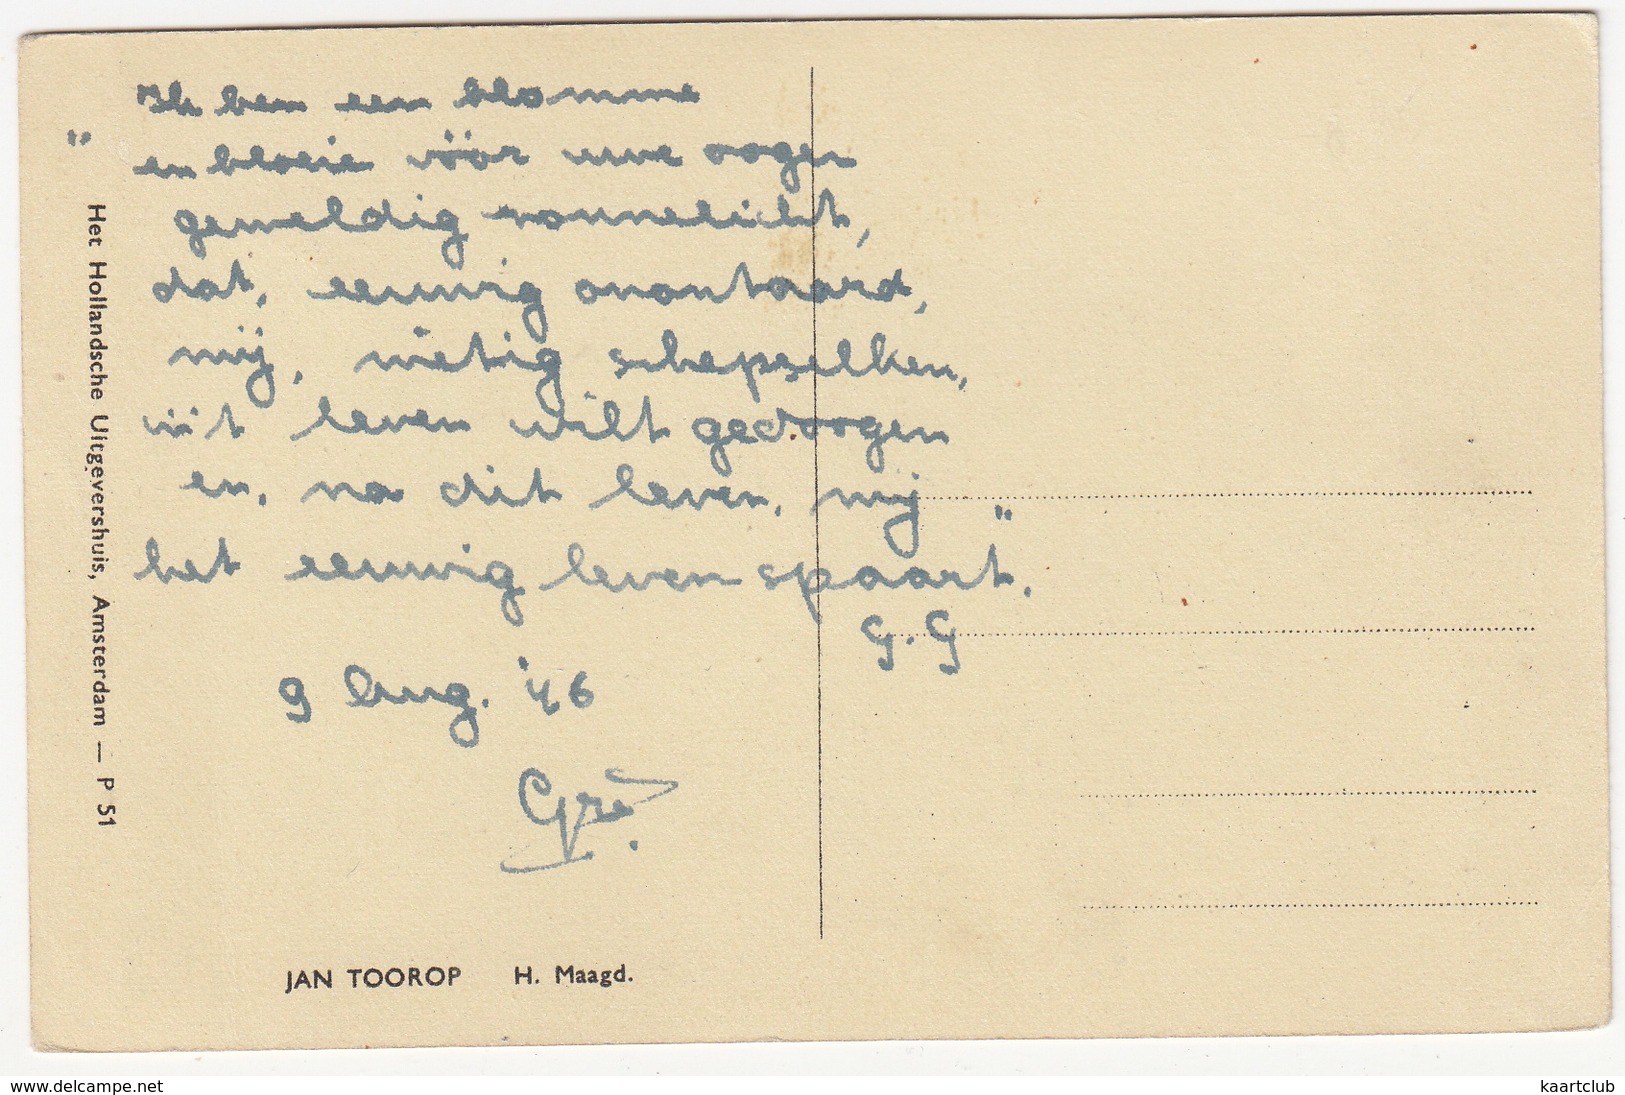 "Ik ben een blomme
en bloeie vóór uwe oogen
geweldig zonnelicht,
dat, eeuwig onontaard,
mij, nietig schepselken,
in 't leven wilt gedoogen
en, na dit leven, mij
het eeuwig leven spaart."
G.G
9 Aug. '46
Gré.
Het Hollandsche Uitgevershuis, Amsterdam — P 51
JAN TOOROP H. Maagd.
www.delcampe.net
kaartclub